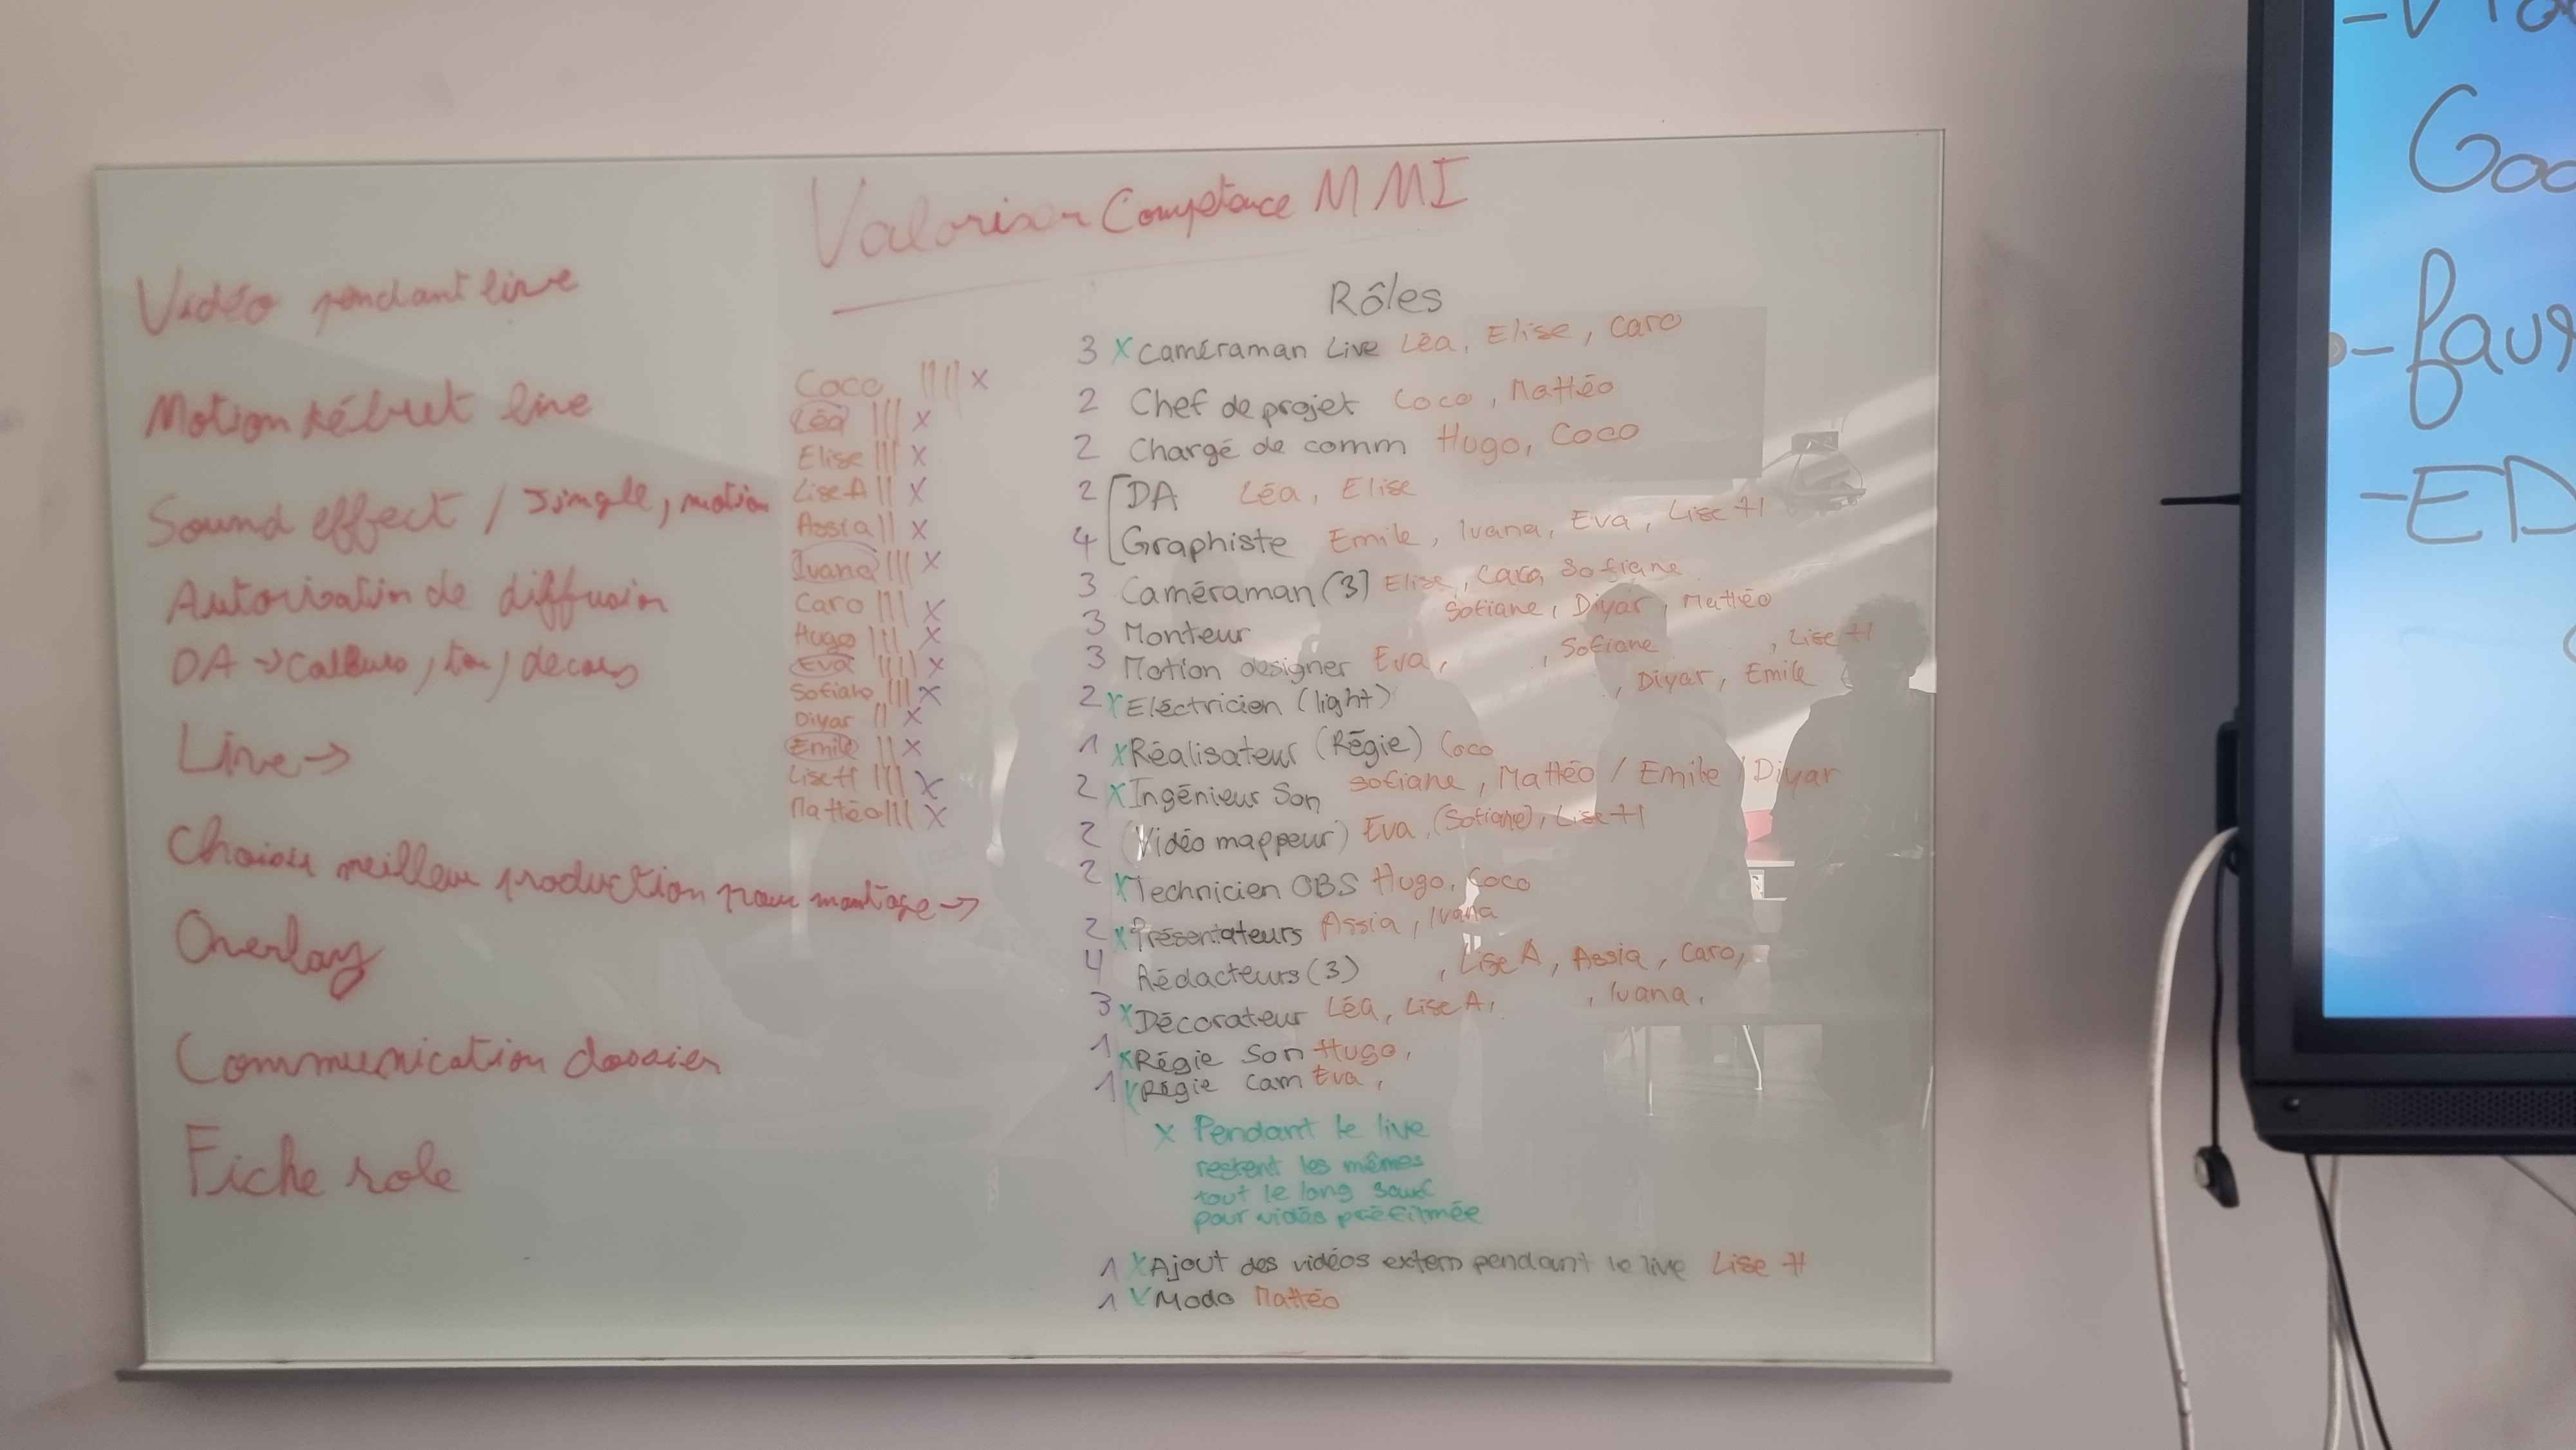 Valoriser Compétence MMI
Vidéo pendant live
Motion début live
Sound effect / Jingle, motion
Autorisation de diffusion
DA -> , ton, decors
Live ->
Choisir meilleur production pour montage ->
Overlay
Communication dossier
Fiche role
Coco |||| x
Léa ||| x
Elise ||| x
Lise A || x
Assia || x
Ivana ||| x
Caro ||| x
Hugo ||| x
Eva |||| x
Sofiane ||| x
Diyar || x
Emile || x
Lise H ||| x
Mattéo ||| x
Rôles
3 x Caméraman Live Léa, Elise, Caro
2 Chef de projet Coco, Mattéo
2 Chargé de comm Hugo, Coco
2 DA Léa, Elise
4 Graphiste Emile, Ivana, Eva, Lise H
3 Caméraman (3) Elise, Caro, Sofiane
3 Monteur Sofiane, Diyar, Mattéo
3 Motion designer Eva, , Sofiane , Lise H
2 x Eléctricien (light) , Diyar, Emile
1 x Réalisateur (Régie) Coco
2 x Ingénieur Son Sofiane, Mattéo / Emile / Diyar
2 (Vidéo mappeur) Eva, (Sofiane), Lise H
2 x Technicien OBS Hugo, Coco
2 x Présentateurs Assia, Ivana
4 Rédacteurs (3) , Lise A, Assia, Caro,
3 x Décorateur Léa, Lise A, , Ivana,
1 x Régie Son Hugo,
1 x Régie Cam Eva,
x Pendant le live
restent les mêmes
tout le long sauf
pour vidéo préfilmée
1 x Ajout des vidéos extern pendant le live Lise H
1 x Modo Mattéo
Goo
- ED